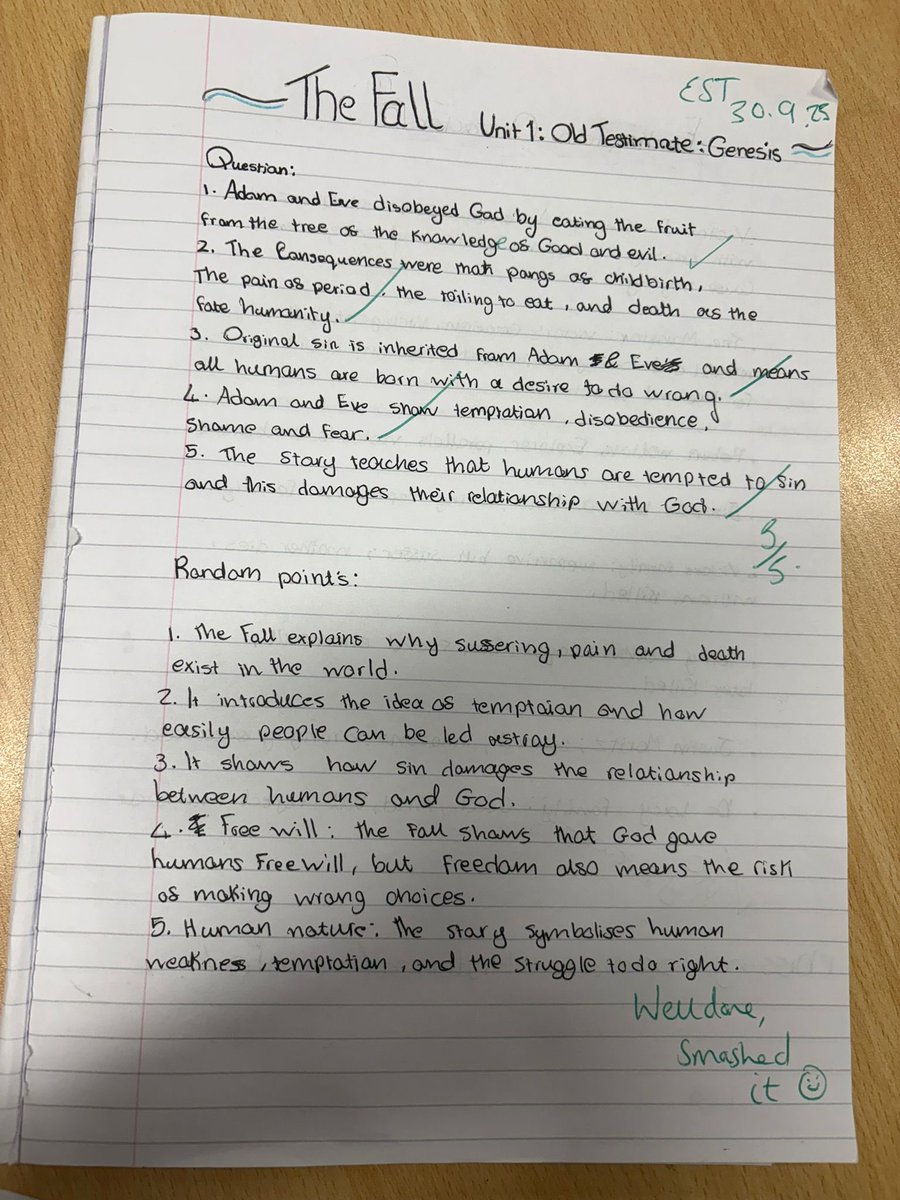 The Fall
EST
30.9.25
Unit 1: Old Testimate: Genesis
Question:
1. Adam and Eve disobeyed God by eating the fruit
from the tree of the Knowledge of Good and evil.
2. The Consequences were pangs of childbirth,
The pain of period, the toiling to eat, and death as the
fate humanity.
3. Original sin is inherited from Adam & Eve and means
all humans are born with a desire to do wrong.
4. Adam and Eve show temptation, disobedience,
shame and fear.
5. The story teaches that humans are tempted to sin
and this damages their relationship with God.
5/5.
Random point's:
1. The Fall explains why suffering, pain and death
exist in the world.
2. It introduces the idea of temptaion and how
easily people can be led astray.
3. It shows how sin damages the relationship
between humans and God.
4. Free will: the Fall shows that God gave
humans Free will, but freedom also means the risk
of making wrong choices.
5. Human nature: The story symbolises human
weakness, temptation, and the struggle to do right.
Well done,
Smashed
it